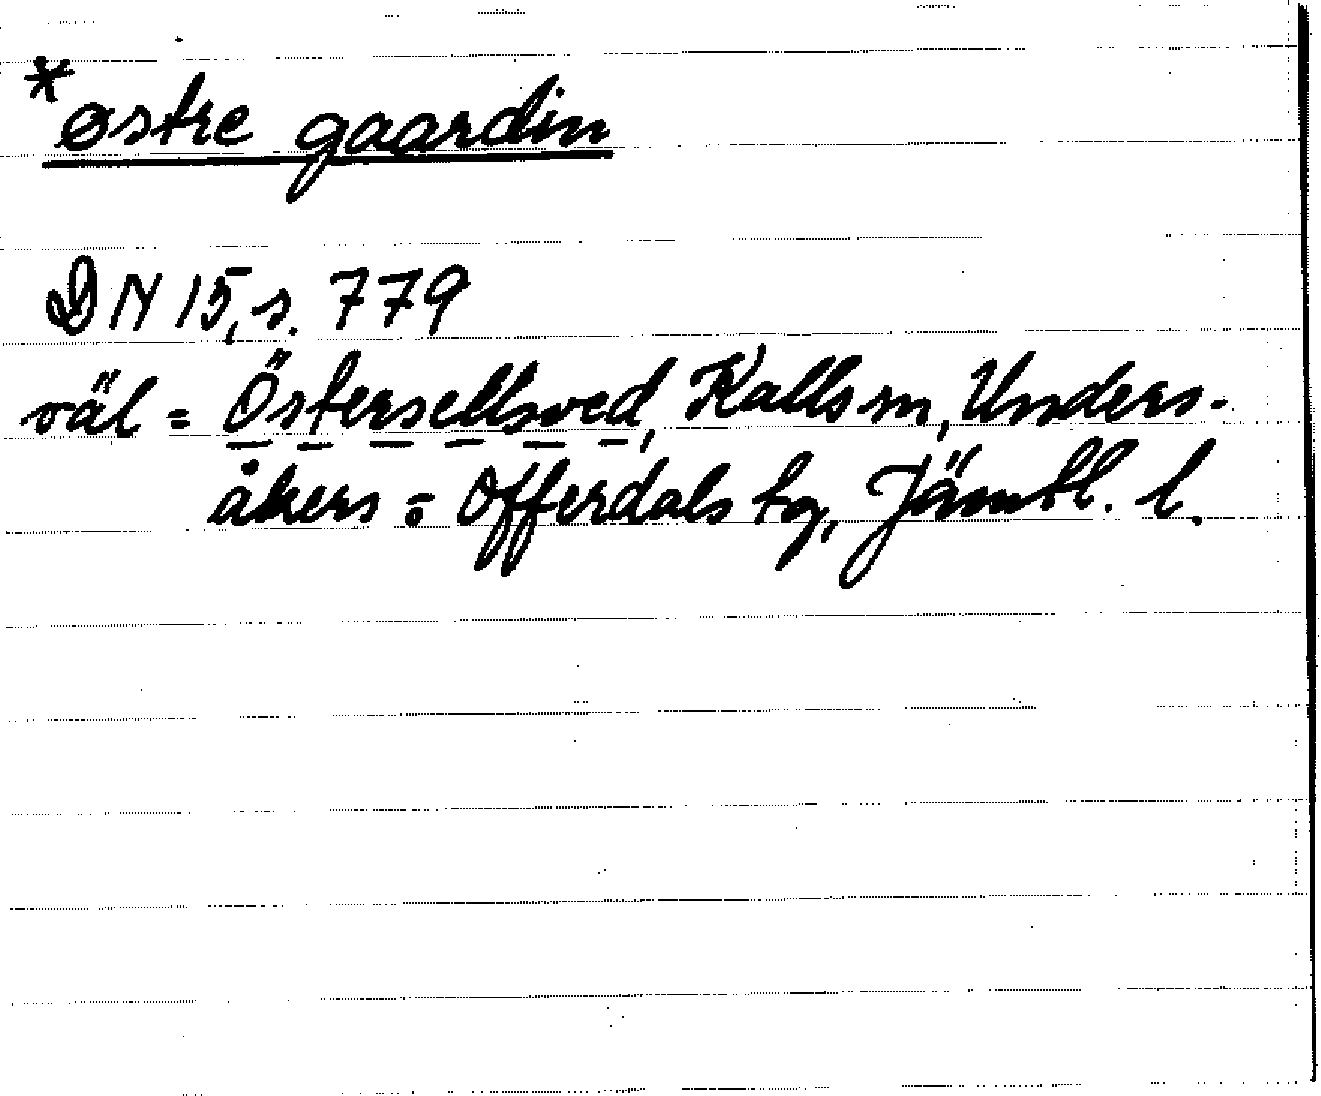 *østre gaardin
DN 15, s. 779
väl = Östersellsved, Kalls sn, Unders-
åkers o Offerdals tg, Jämtl. l.